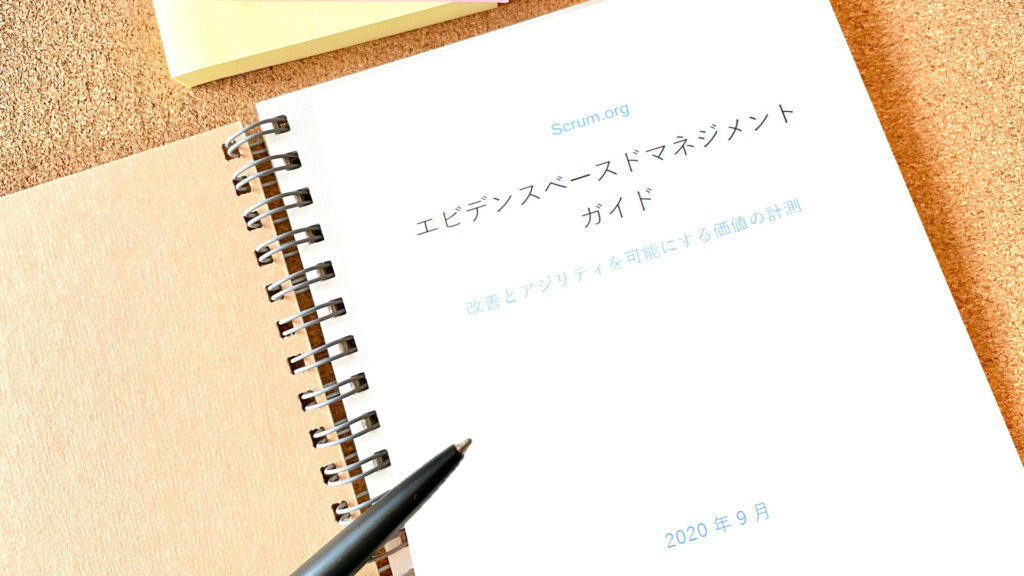 Scrum.org
エビデンスベースドマネジメント
ガイド
改善とアジリティを可能にする価値の計測
2020 年 9 月